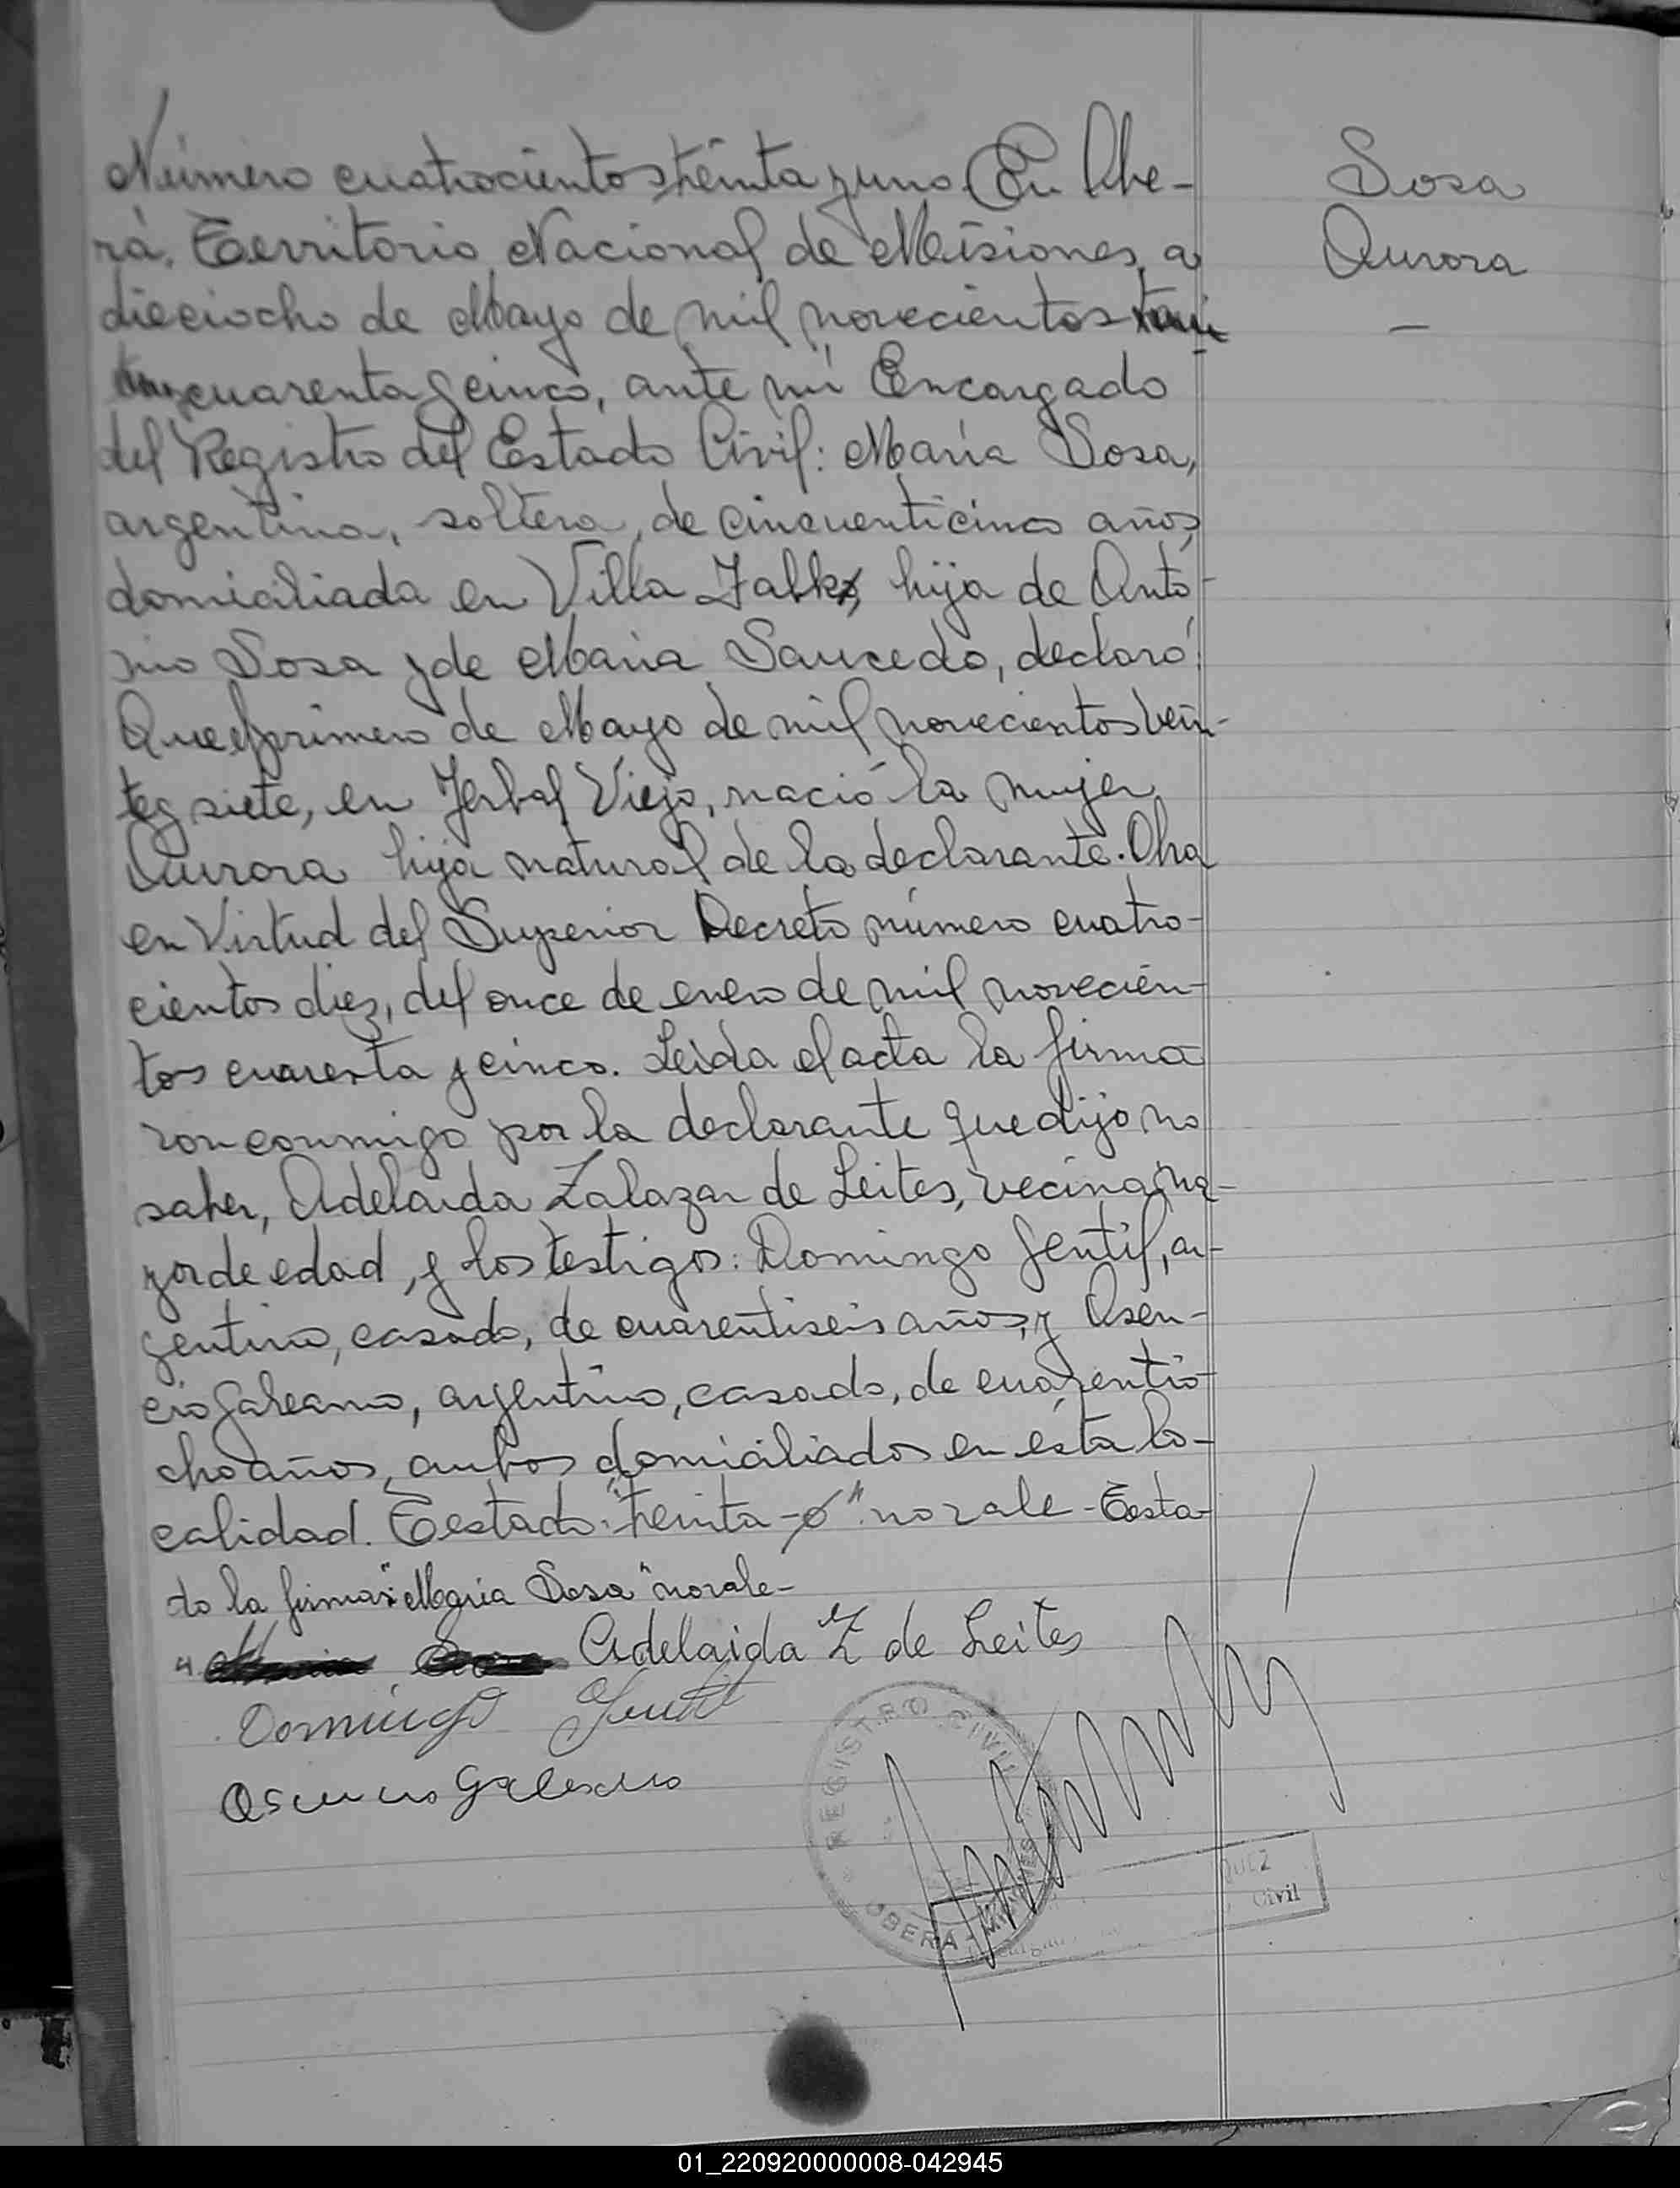 Número cuatrocientos treinta y uno. En Obe-
rá, Territorio Nacional de Misiones, a
dieciocho de Mayo de mil novecientos
cuarenta y cinco, ante mí Encargado
del Registro del Estado Civil: María Sosa,
argentina, soltera, de cincuenticinco años,
domiciliada en Villa hija de Anto-
nio Sosa y de María Saucedo, declaró:
Que el primero de Mayo de mil novecientos vein-
te y siete, en Yerbal Viejo, nació la mujer
Aurora hija natural de la declarante. Obra
en Virtud del Superior Decreto número cuatro-
cientos diez, del once de enero de mil novecien-
tos cuarenta y cinco. Leida el acta la firma
ron conmigo por la declarante que dijo no
saber, Adelaida Zalazar de Leites, vecina, ma-
yor de edad, y los testigos: Domingo Gentil, ar-
gentino, casado, de cuarentiseis años, y Asen-
cio Galeano, argentino, casado, de cuarentio-
cho años, ambos domiciliados en ésta lo-
calidad. Testado: "treinta - o" no vale - Testa-
do la firma: "María Sosa" no vale -
Adelaida Z de Leites
Domingo Gentil
Asencio Galeano
Sosa
Aurora
—
REGISTRO CIVIL
OBERÁ - MISIONES
QUEZ
Civil
01_220920000008-042945